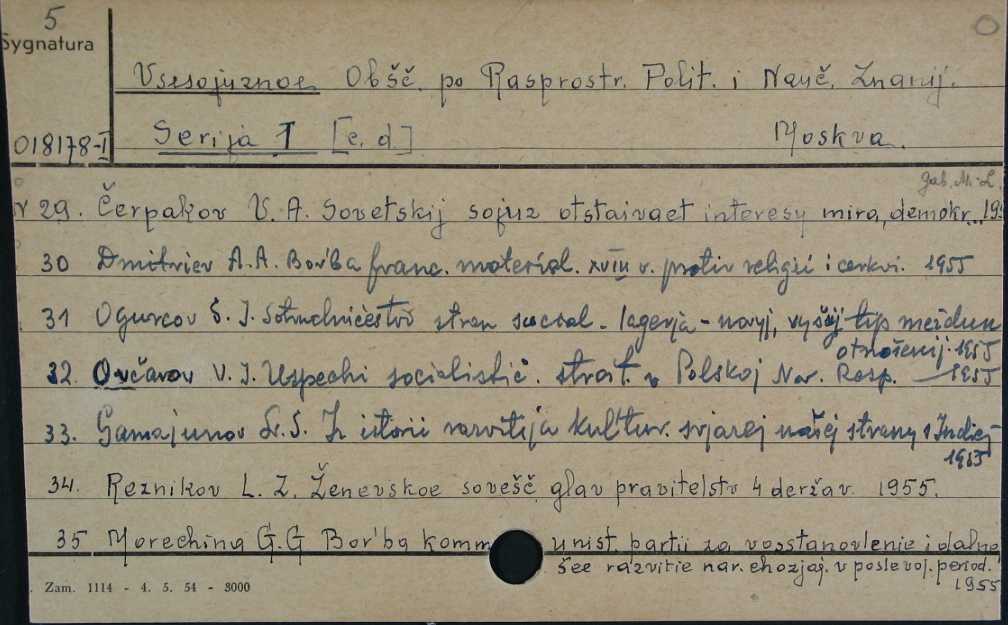 5
Sygnatura
Vsesojuznoe Obšč. po Rasprostr. Polit. i Nauč. Znanij.
018178-I Serija I [c. d.] Moskva.
Gab. M.-L.
29. Čerpakov V. A. Sovetskij sojuz otstaivaet interesy mira, demokr.. 195
30 Dmitriev A. A. Bor'ba franc. material. XVIII v. protiv religii i cerkvi. 1955
31 Ogurcov S. I. Sotrudničestvo stran social. lagerja - novyj, vysšij tip meždun
otnošenij. 1955
32. Ovčarov V. I. Uspechi socialistič. stroit. v Polskoj Nar. Resp. — 1955
33. Gamajunov L. S. Iz istorii razvitija kul'tur. svjazej našej strany s Indiej
1955
34. Reznikov L. Z. Ženevskoe sovešč. glav pravitelstv 4 deržav. 1955.
35 Morechina G. G Bor'ba kommunist. partii za vosstanovlenie i dalne
šee razvitie nar. chozjaj. v poslevoj. period.
1955
Zam. 1114 - 4. 5. 54 - 3000